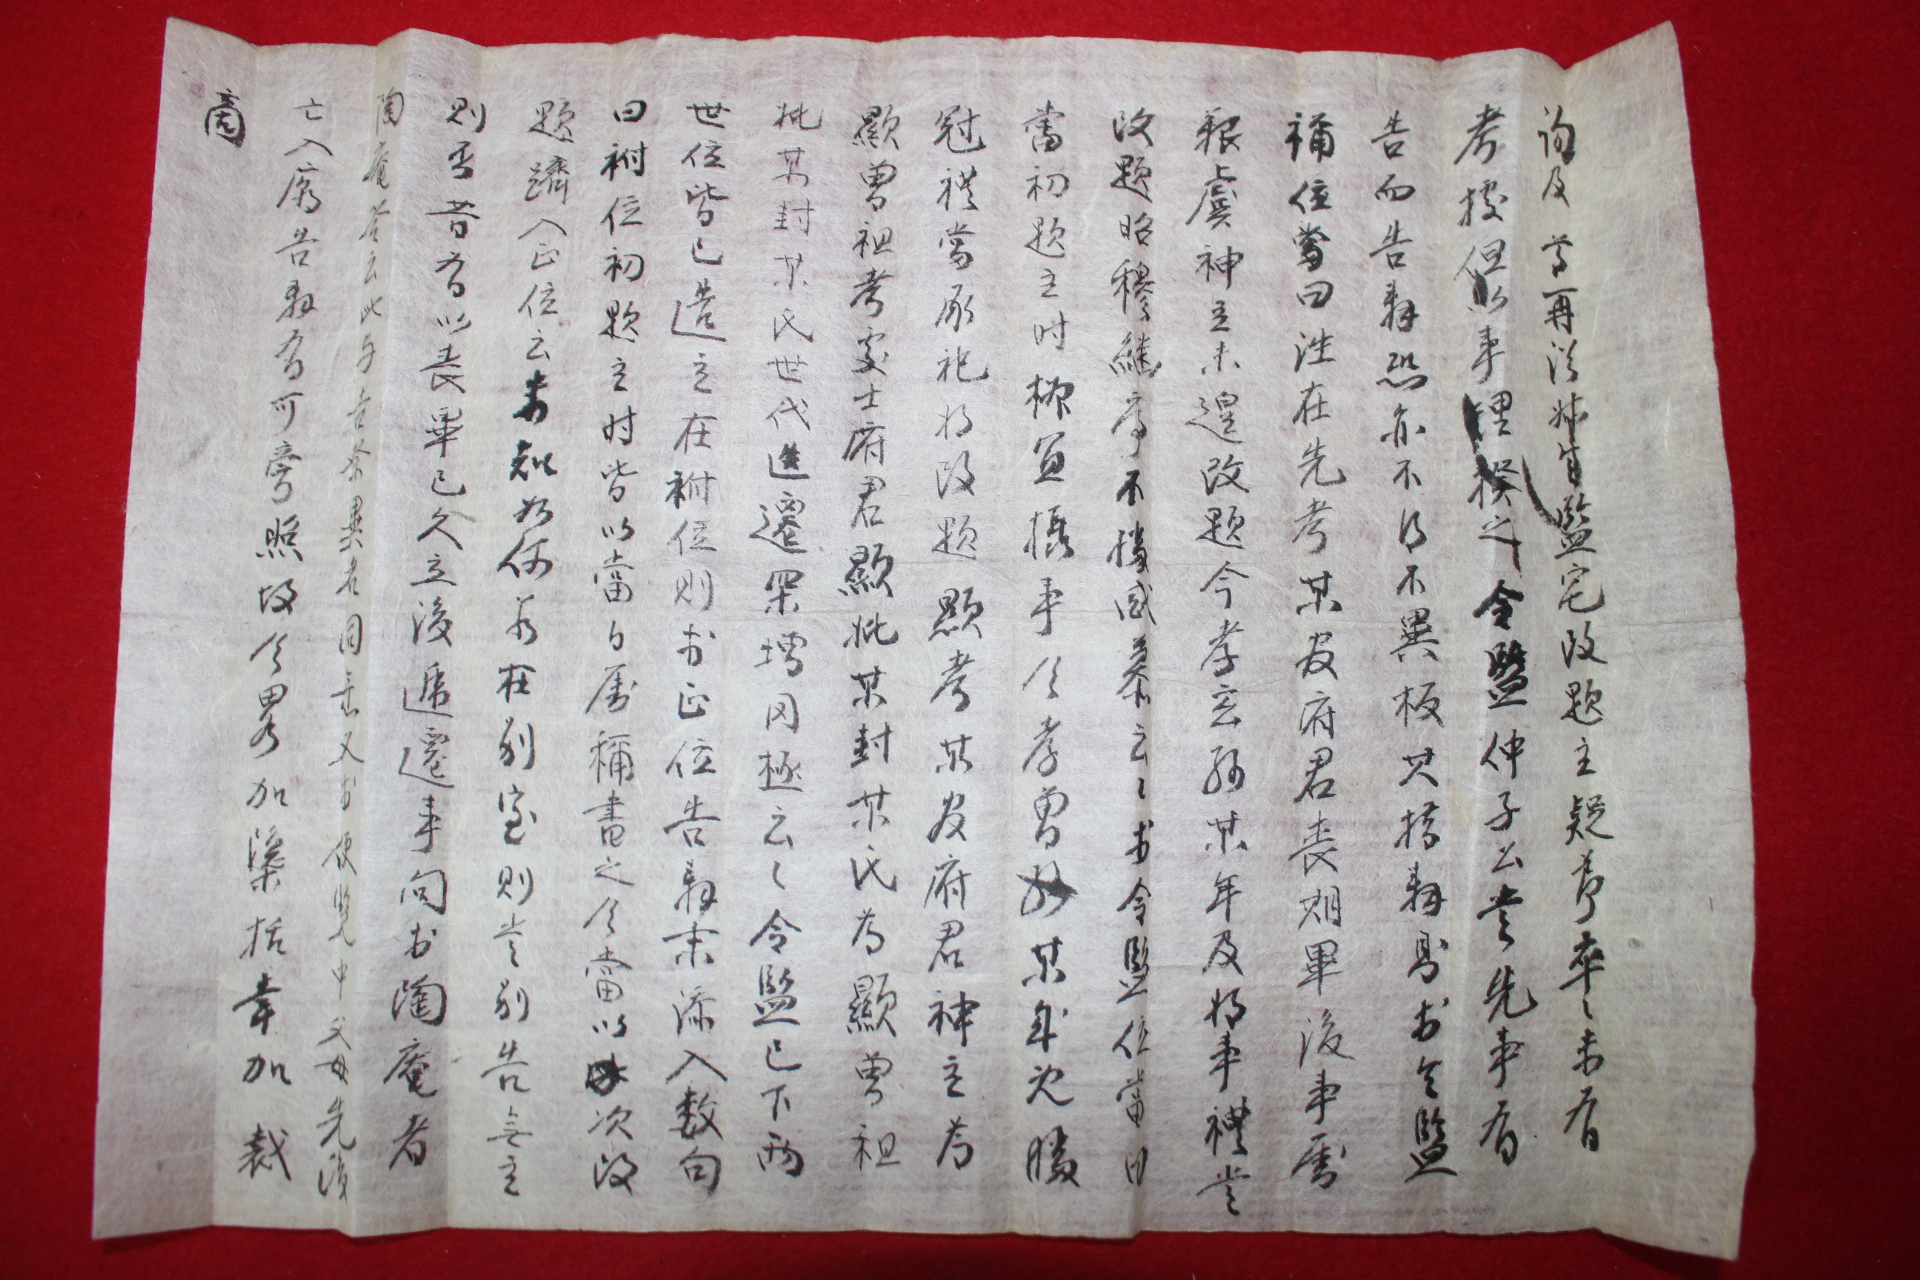 詢及 尊再從姊宅監宅改題主疑節卒〻未有
考據但以事理揆之 令監仲子公當先事有
告而告辭恐亦不得不異板其措辭曷於令監
禰位當曰 在先考某官府君喪期畢後事屬
艱虞神主未遑改題今孝玄孫某年及將事禮當
改題昭穆繼序不勝感慕云〻於令監位當曰
當初題主時 權攝事今孝曾孫某年旣勝
冠禮當承祀將改題 顯考某官府君神主爲
顯曾祖考處士府君顯妣某封某氏爲顯曾祖
妣某封某氏世代迭遷采增罔極云〻令監已下兩
世位皆已造主在祔位則於正位告辭末添入數句
曰祔位初題主時皆以當日屬稱書之今當以次改
題躋入正位云未知如何若在別室則當別告無主
則否昔有以喪畢已久立後遞遷事問於陶庵者
陶庵答云此與吉祭異者同 又於 便覽中父母先後
亡入廟告辭有可旁照故今畧加櫽括幸加裁
啇